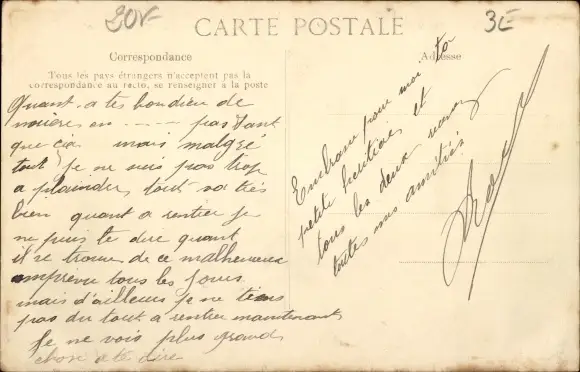 20F
3E
CARTE POSTALE
Correspondance
Adresse
Tous les pays étrangers n'acceptent pas la
correspondance au recto, se renseigner à la poste
Quant a tes bondieu de
en ---- pas tant
que ça mais malgré
tout je ne suis pas trop
a plaindre, tout va très
bien quant a rentrer je
ne puis te dire quant
il se trouve de ce malheureux
imprévu tous les jours
mais d'ailleurs je ne tiens
pas du tout a rentrer maintenant
Je ne vois plus grand
chose a te dire
Embrasse pour moi ta
petite héritière et
tous les deux recevez
toutes mes amitiés